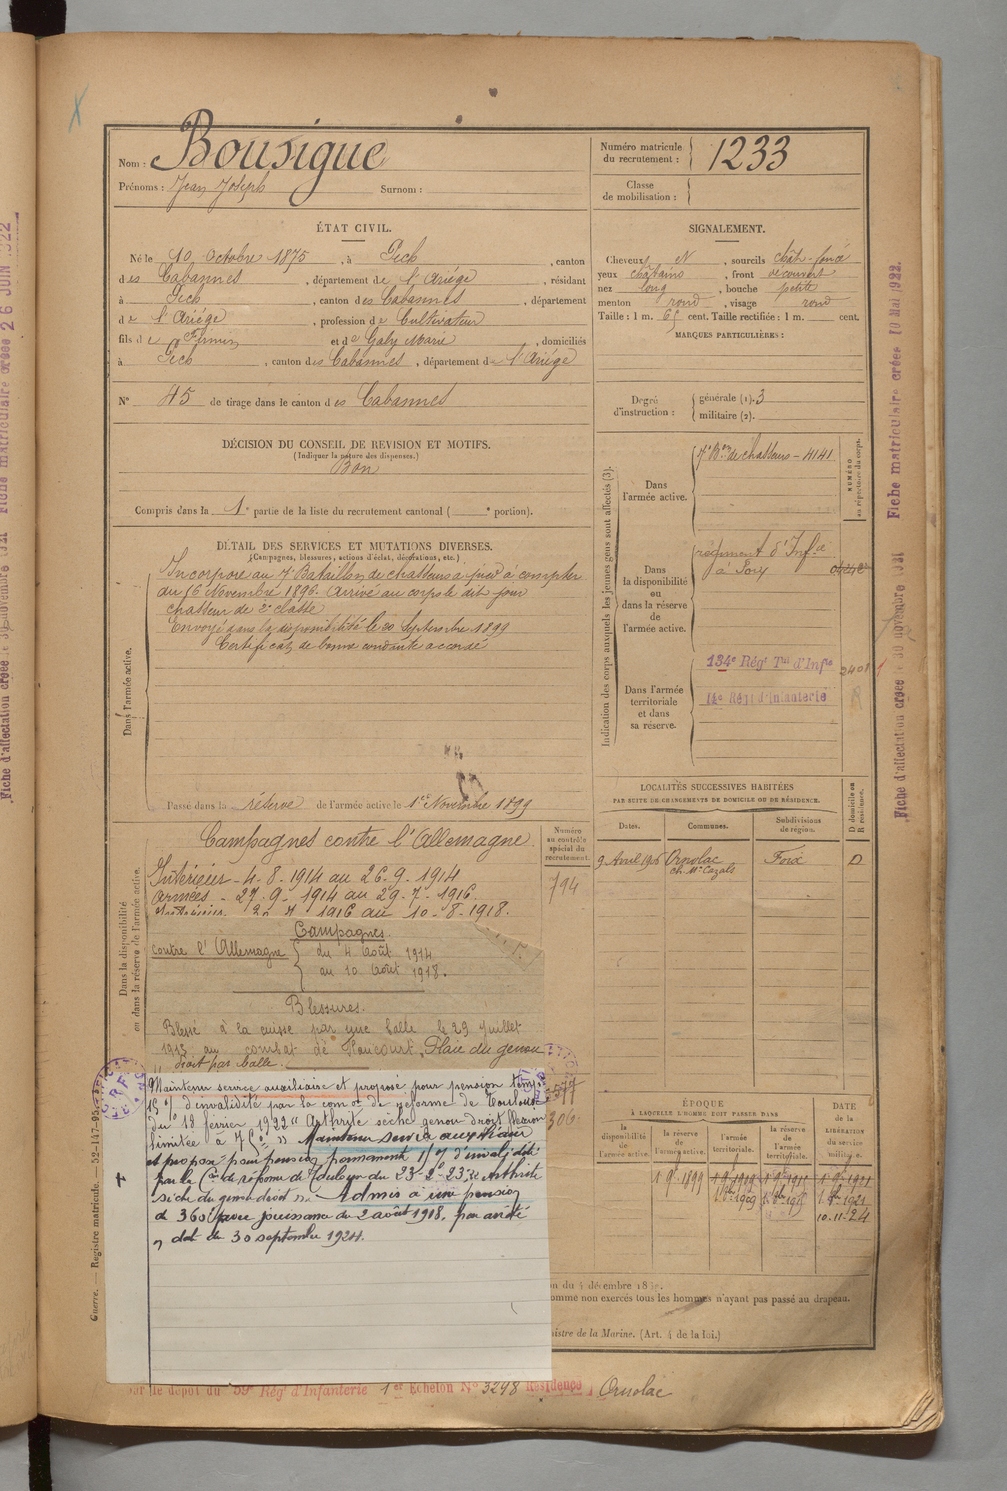 Nom : Bousigue
Prénoms : Jean Joseph Surnom :
Numéro matricule du recrutement : 1233
Classe de mobilisation :
ÉTAT CIVIL.
Né le 10 Octobre 1875, à Pech, canton
des Cabannes, département de l'Ariège, résidant
à Pech, canton des Cabannes, département
de l'Ariège, profession de Cultivateur
fils de Firmin et de Galy Marie, domiciliés
à Pech, canton des Cabannes, département de l'Ariège
N° 45 de tirage dans le canton des Cabannes
DÉCISION DU CONSEIL DE REVISION ET MOTIFS.
(Indiquer la nature des dispenses.)
Bon
Compris dans la 1e partie de la liste du recrutement cantonal ( e portion).
SIGNALEMENT.
Cheveux N, sourcils chât-foncé
yeux châtains, front découvert
nez long, bouche petite
menton rond, visage rond
Taille : 1 m. 65 cent. Taille rectifiée : 1 m. cent.
MARQUES PARTICULIÈRES :
Degré d'instruction : générale (1). 3
militaire (2).
DÉTAIL DES SERVICES ET MUTATIONS DIVERSES.
(Campagnes, blessures, actions d'éclat, décorations, etc.)
Dans l'armée active.
Incorporé au 7e Bataillon de chasseurs à pied à compter
du 16 Novembre 1896. Arrivé au corps le dit jour
chasseur de 2e classe
Envoyé dans la disponibilité le 20 Septembre 1899
Certificat de bonne conduite accordé
Passé dans la réserve de l'armée active le 1er Novembre 1899
Indication des corps auxquels les jeunes gens sont affectés (3).
NUMÉRO au répertoire du corps.
Dans l'armée active.
7e Bon de chasseurs - 4141
Dans la disponibilité ou dans la réserve de l'armée active.
régiment d'Infie
à Foix
Dans l'armée territoriale et dans sa réserve.
134e Régt Tal d'Infie 2401
14e Régt d'Infanterie
LOCALITÉS SUCCESSIVES HABITÉES
PAR SUITE DE CHANGEMENTS DE DOMICILE OU DE RÉSIDENCE.
D domicile ou R résidence.
Dates. Communes. Subdivisions de région.
9 Avril 1906 Ornolac Foix D
ch. Mr Cazals
Dans la disponibilité ou dans la réserve de l'armée active.
Numéro au contrôle spécial du recrutement.
794
Campagnes contre l'Allemagne
Intérieur - 4-8-1914 au 26-9-1914
Armées - 27-9-1914 au 29-7-1916
1916 au 10-8-1918.
Campagnes.
contre l'Allemagne { du 4 Août 1914
au 10 Août 1918.
Blessures.
Blessé à la cuisse par une balle le 29 Juillet
au combat de Plaie du genou
droit par balle.
Maintenu service auxiliaire et proposé pour pension temp.
15 % d'invalidité par la comon de réforme de Toulouse
du 18 février 1922 "Arthrite sèche genou droit flexion
limitée à 75°" Maintenu service auxiliaire
et proposé pour pension permanente % d'invalidité
par la Con de réforme de Toulouse du 23-2-23 : Arthrite
sèche du genou droit. Admis à une pension
de 360 f avec jouissance du 2 août 1918, par arrêté
en date du 30 septembre 1924.
306
ÉPOQUE
À LAQUELLE L'HOMME DOIT PASSER DANS
DATE DE LA LIBÉRATION du service militaire.
la disponibilité de l'armée active. la réserve de l'armée active. l'armée territoriale. la réserve de l'armée territoriale.
1 9bre 1899
10-11-24
comme non exercés tous les hommes n'ayant pas passé au drapeau.
Ministre de la Marine. (Art. 4 de la loi.)
Guerre. — Registre matricule. — 52-147-95
le dépôt du 59e Rég' d'Infanterie 1er Echelon N° 3298 Résidence Ornolac
Fiche matriculaire créée 10 Mai 1922.
Fiche d'affectation créée le 30 novembre 1921
Fiche matriculaire créée 26 JUIN 1922